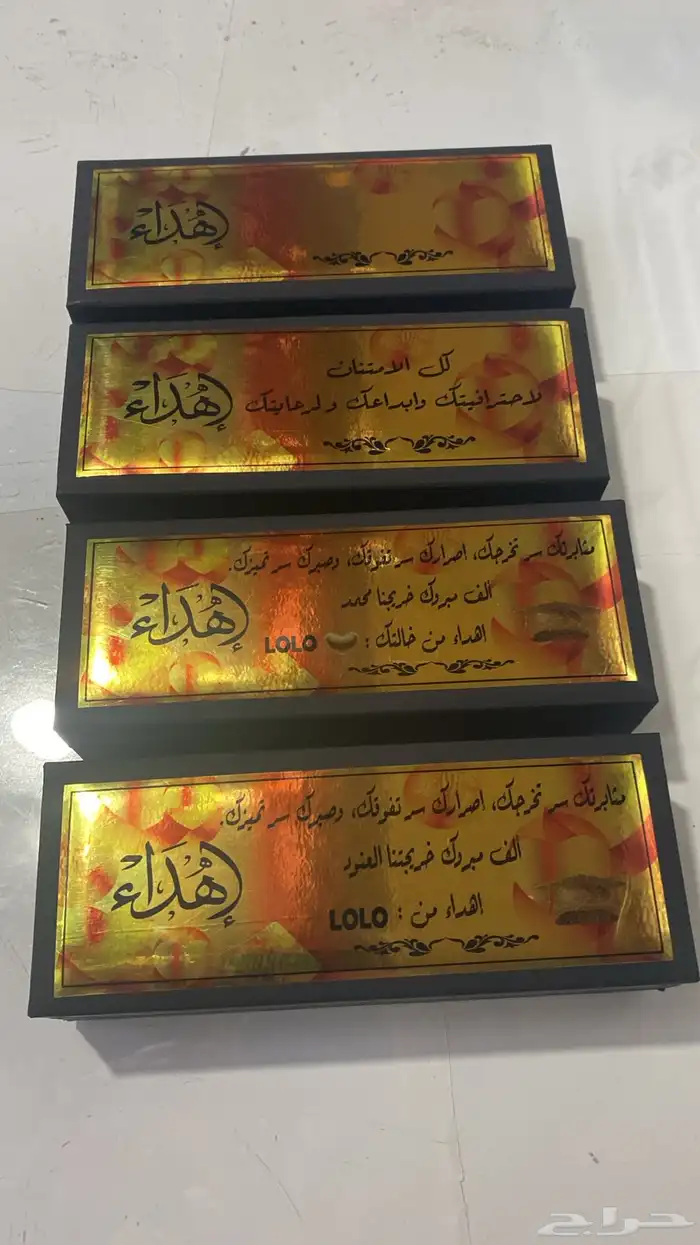 إهداء
كل الامتنان
لاحترافيتك وابداعك ولرعايتك
إهداء
مثابرتك سر تخرجك، اصرارك سر تفوقك، وصبرك سر تميزك.
الف مبروك خريجنا محمد
اهداء من خالتك : LOLO
إهداء
مثابرتك سر تخرجك، اصرارك سر تفوقك، وصبرك سر تميزك.
الف مبروك خريجتنا العنود
اهداء من : LOLO
إهداء
حراج